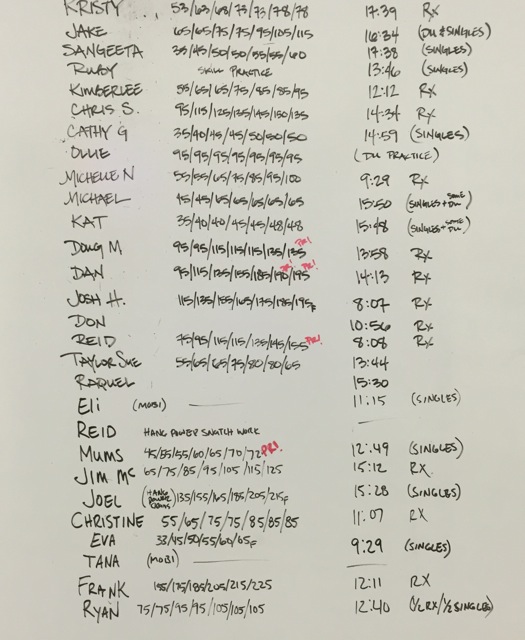 KRISTY 53/63/68/73/73/78/78 17:39 RX
JAKE 65/65/75/75/95/105/115 16:34 (DU & SINGLES)
SANGEETA 35/45/50/50/55/55/60 17:38 (SINGLES)
RUDY SKILL PRACTICE 13:46 (SINGLES)
KIMBERLEE 55/65/65/75/85/85/95 12:12 RX
CHRIS S. 95/115/125/135/145/150/135 14:34 RX
CATHY G 35/40/45/45/50/50/50 14:59 (SINGLES)
OLLIE 95/95/95/95/95/95/95 (DU PRACTICE)
MICHELLE N 55/55/65/75/85/95/100 9:29 RX
MICHAEL 45/45/65/65/65/65/65 15:50 (SINGLES + SOME DU)
KAT 35/40/40/45/45/48/48 15:48 (SINGLES + SOME DU)
DOUG M 95/95/115/115/115/135/135 PR! 13:58 RX
DAN 95/115/135/155/185/190/195 PR! PR! 14:13 RX
JOSH H. 115/135/155/165/175/185/195F 8:07 RX
DON 10:56 RX
REID 75/95/115/115/135/145/155 PR! 8:08 RX
TAYLOR SUE 55/65/65/75/80/80/65 13:44
RAQUEL 15:30
Eli (MOBI) 11:15 (SINGLES)
REID HANG POWER SNATCH WORK
MUMS 45/55/60/65/70/72 PR! 12:49 (SINGLES)
JIM MC 65/75/85/95/105/115/125 15:12 RX
JOEL (HANG POWER) 135/155/165/185/205/215F 15:28 (SINGLES)
CHRISTINE 55/65/75/75/85/85/85 11:07 RX
EVA 33/45/50/55/60/65F 9:29 (SINGLES)
TANA (MOBI)
FRANK 155/175/185/205/215/225 12:11 RX
RYAN 75/75/95/95/105/105/105 12:40 (1/2 RX/1/2 SINGLES)